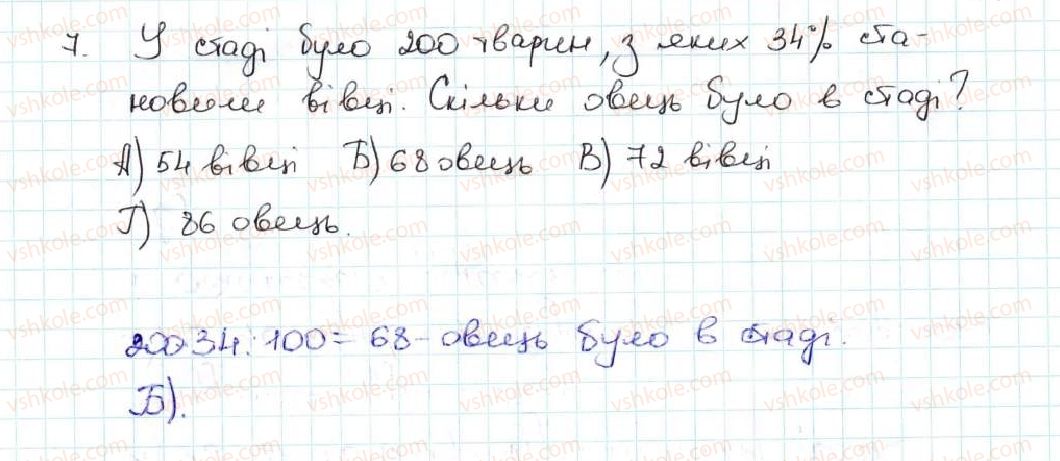 7. У стаді було 200 тварин, з яких 34% ста-
новили вівці. Скільки овець було в стаді?
А) 54 вівці Б) 68 овець В) 72 вівці
Г) 86 овець.
200·34:100= 68- овець було в стаді.
Б).